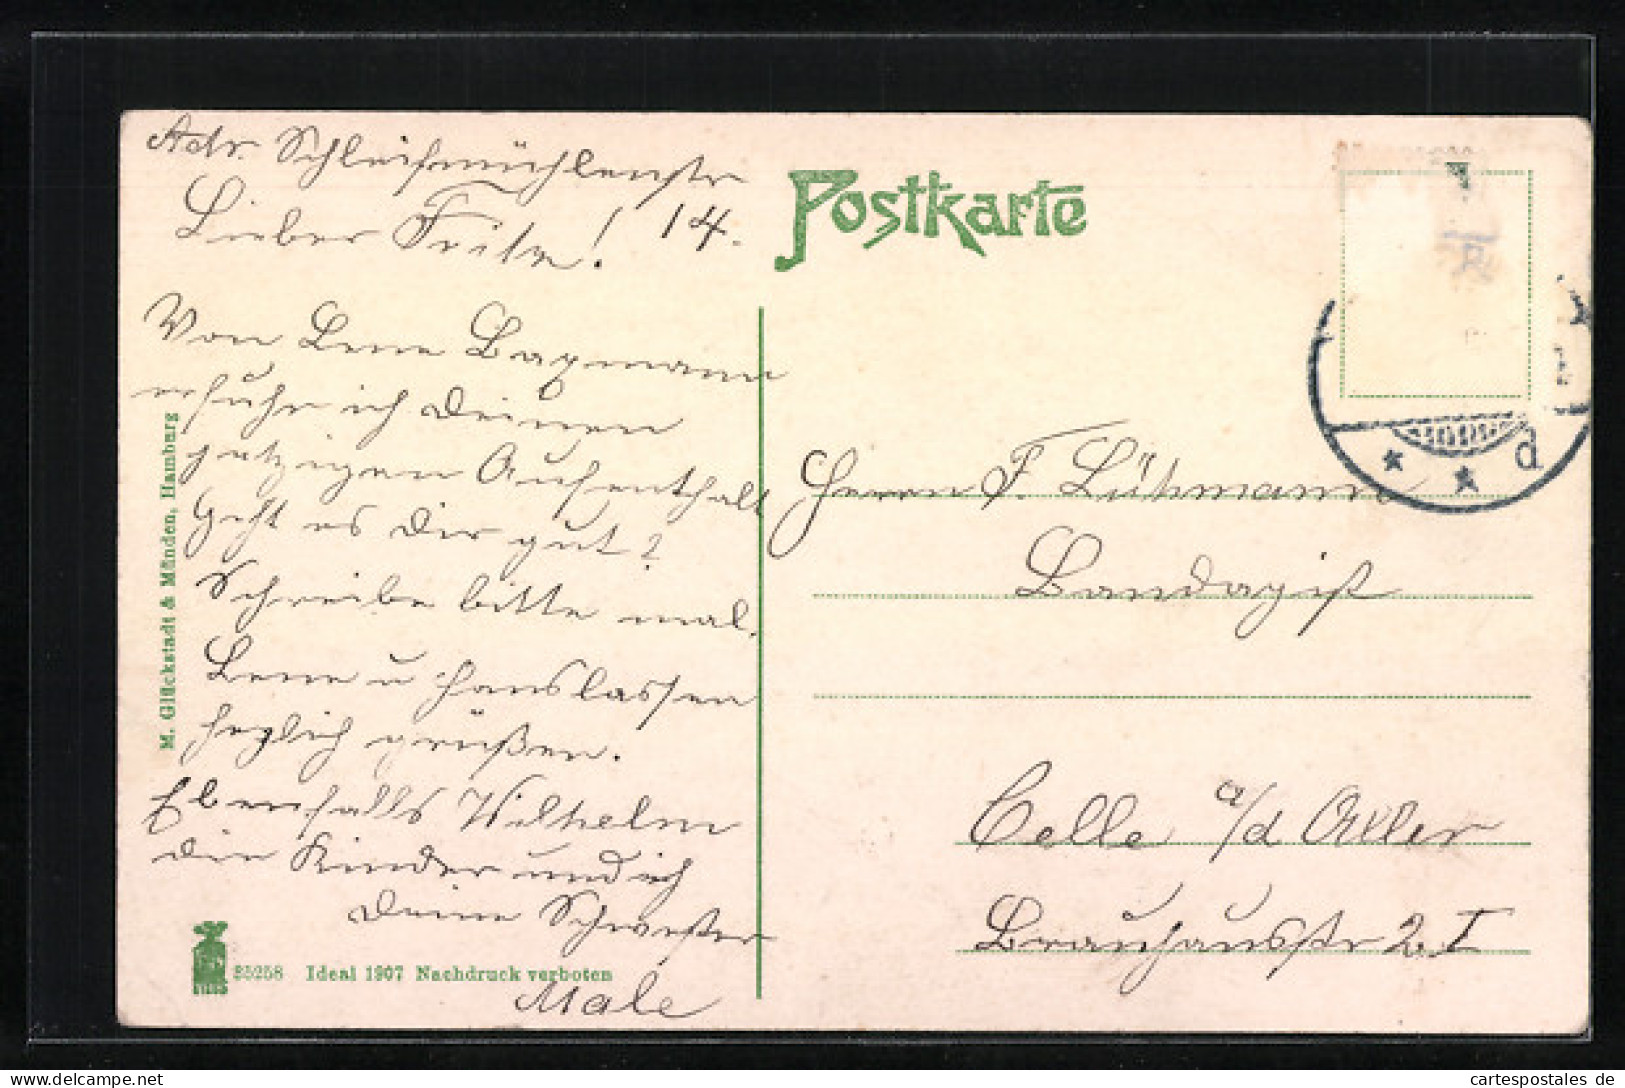 Adr. Schleifmühlenstr
14.
Lieber Fritz!
Von Lene Bergmann
erfuhr ich Deinen
jetzigen Aufenthalt
Geht es Dir gut?
Schreibe bitte mal.
Lene u Hans lassen
herzlich grüßen.
Ebenfalls Wilhelm
die Kinder und ich
Deine Schwester
Male
M. Glückstadt & Münden, Hamburg
35258 Ideal 1907 Nachdruck verboten
Postkarte
Herrn F. Lühmann
Bandagist
Celle a/d Aller
Brauhausstr 2. I
d
cartespostales de